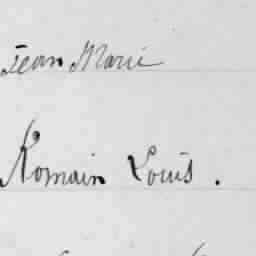 Jean Marie
Romain Louis.